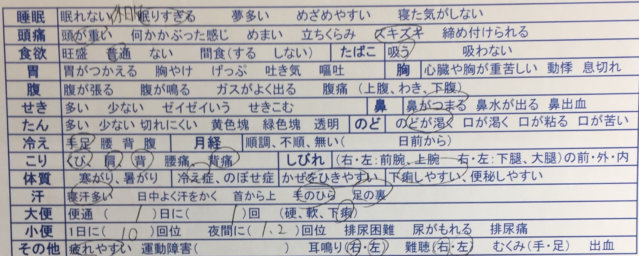 睡眠 眠れない 眠りすぎる 夢多い めざめやすい 寝た気がしない
頭痛 頭が重い 何かかぶった感じ めまい 立ちくらみ ズキズキ 締め付けられる
食欲 旺盛 普通 ない 間食(する しない) たばこ 吸う 吸わない
胃 胃がつかえる 胸やけ げっぷ 吐き気 嘔吐 胸 心臓や胸が重苦しい 動悸 息切れ
腹 腹が張る 腹が鳴る ガスがよく出る 腹痛(上腹、わき、下腹)
せき 多い 少ない ゼイゼイいう せきこむ 鼻 鼻がつまる 鼻水が出る 鼻出血
たん 多い 少ない 切れにくい 黄色塊 緑色塊 透明 のど のどが渇く 口が渇く 口が粘る 口が苦い
冷え 手足 腰 背 腹 月経 順調、不順、無い( 日前から)
こり くび、肩、背 腰痛、背痛 しびれ (右・左:前腕、上腕 右・左:下腿、大腿)の前・外・内
体質 寒がり、暑がり 冷え症、のぼせ症 かぜをひきやすい 下痢しやすい、便秘しやすい
汗 寝汗多い 日中よく汗をかく 首から上 手のひら 足の裏
大便 便通(1)日に(1)回 (硬、軟、下痢)
小便 1日に(10)回位 夜間に(1.2)回位 排尿困難 尿がもれる 排尿痛
その他 疲れやすい 運動障害( ) 耳鳴り(右・左) 難聴(右・左) むくみ(手・足) 出血